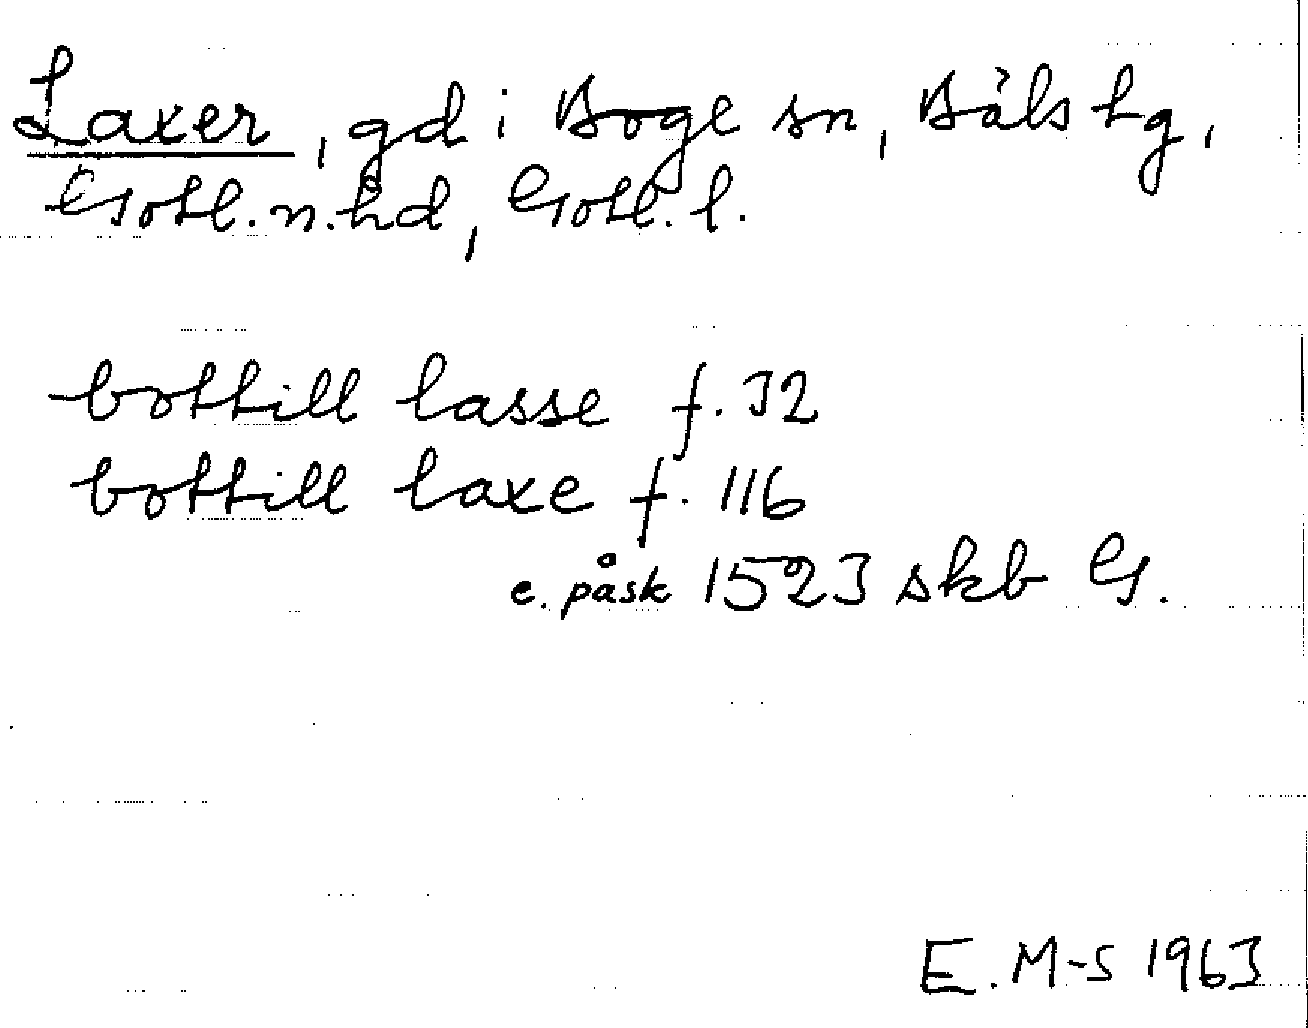 Laxer, gd i Boge sn, Bäls tg,
Gotl. n. hd, Gotl. l.
bottill lasse f. 32
bottill laxe f. 116
e. påsk 1523 skb G.
E. M-S 1963